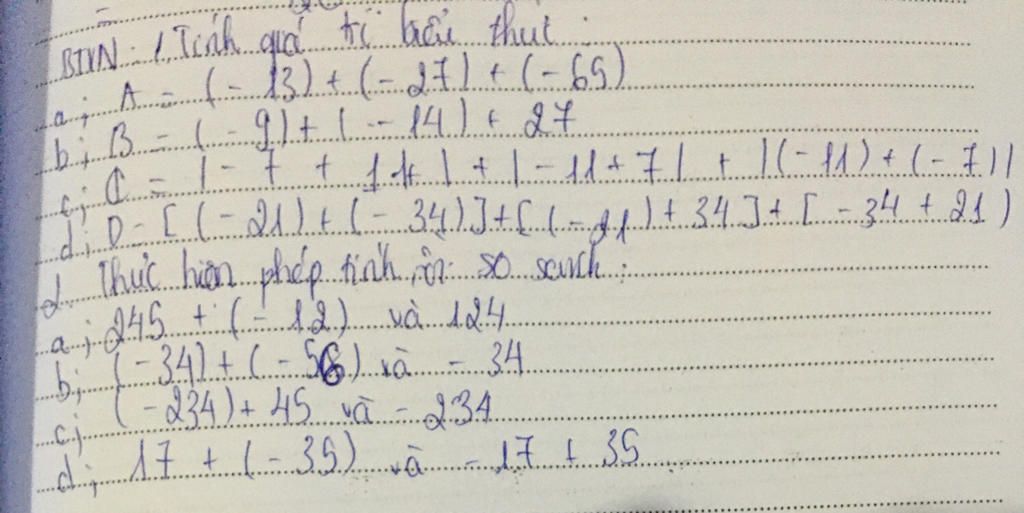 BTVN: 1, Tính giá trị biểu thức:
a; A = (-13) + (-27) + (-65)
b; B = (-9) + (-14) + 27
c; C = |-7 + 11| + |-11+7| + |(-11) + (-7)|
d; D = [(-21) + (-34)] + [(-21) + 34] + [-34 + 21)
2. Thực hiện phép tính, rồi so sánh:
a; 245 + (-12) và 124
b; (-34) + (-56) và -34
c; (-234) + 45 và -234
d; 17 + (-35) và -17 + 35